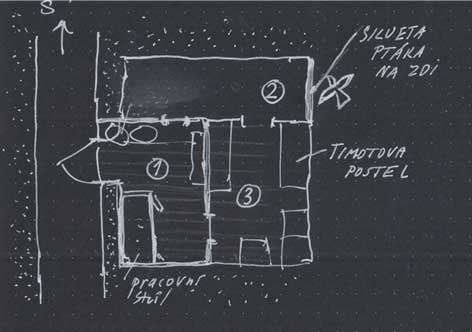 S
SILUETA
PTÁKA
NA ZDI
2
TIMOTOVA
POSTEL
1
3
pracovní
stůl